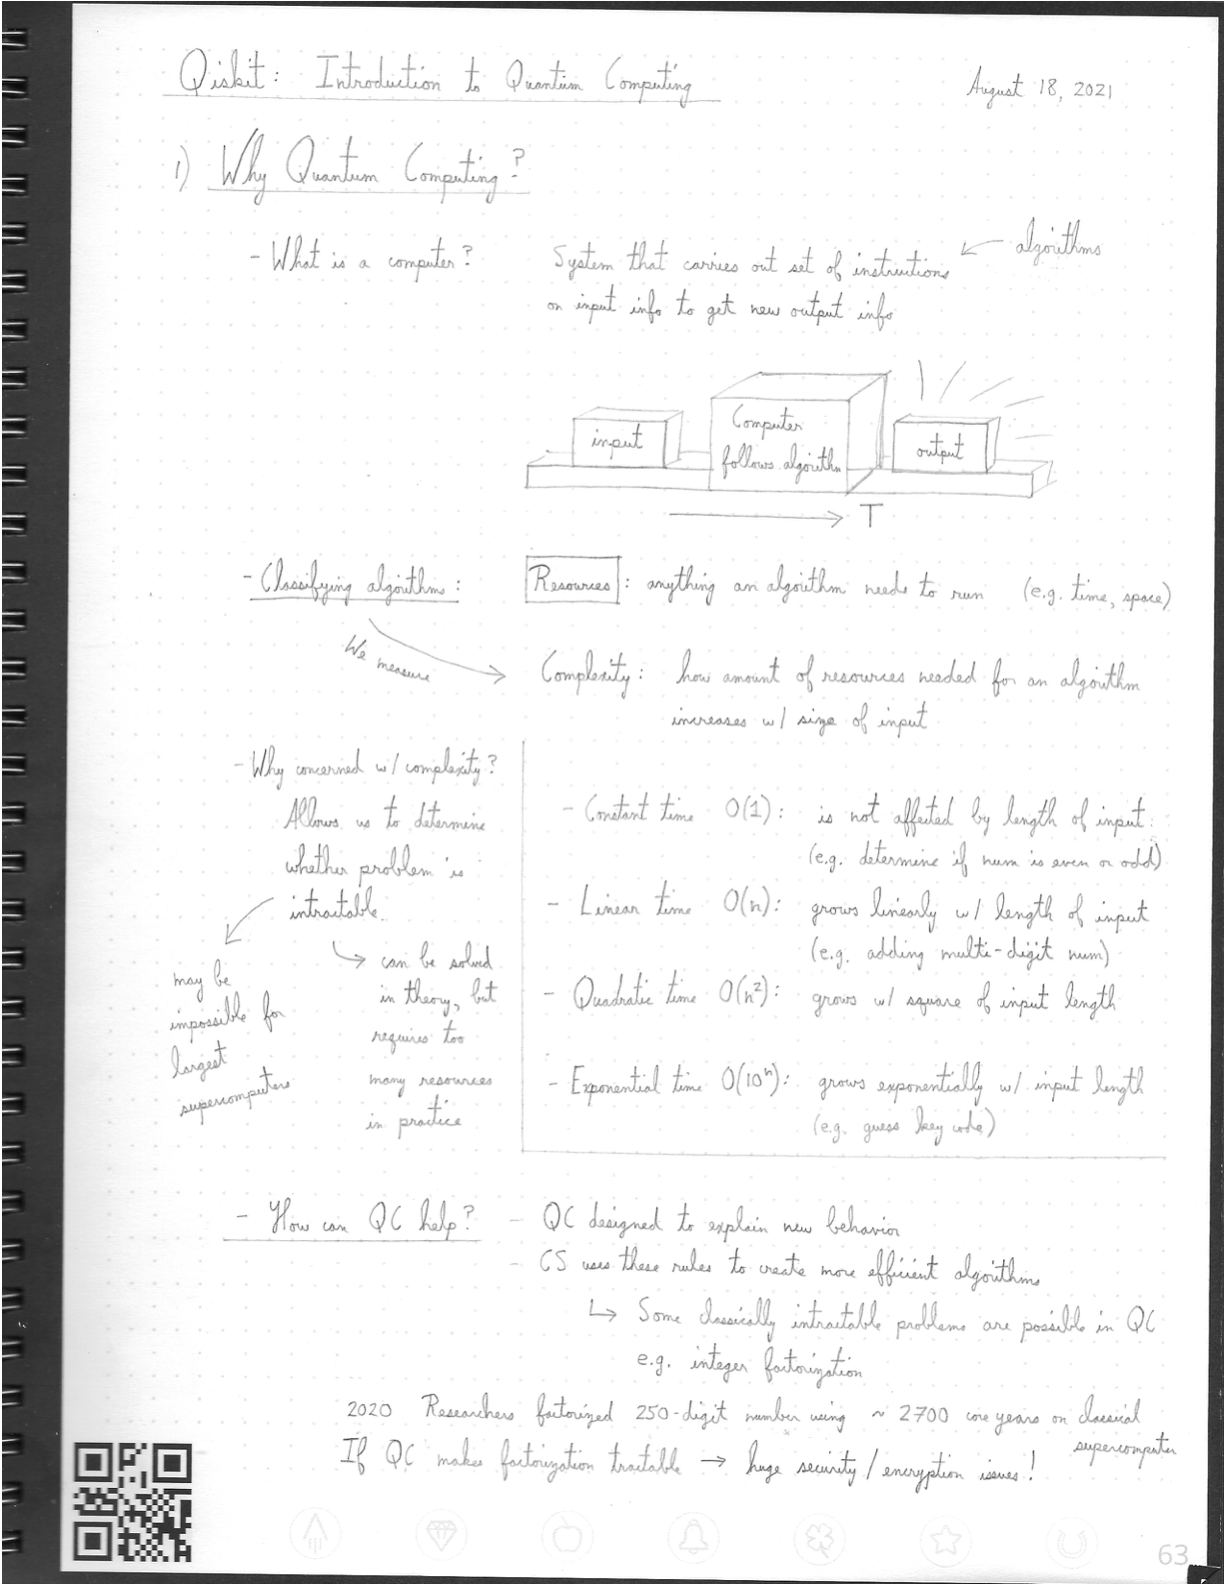 Qiskit: Introduction to Quantum Computing
August 18, 2021
1) Why Quantum Computing?
- What is a computer?
System that carries out set of instructions
algorithms
on input info to get new output info
input
Computer
follows algorithm
output
T
- Classifying algorithms:
Resources: anything an algorithm needs to run (e.g. time, space)
We measure
Complexity: how amount of resources needed for an algorithm
increases w/ size of input
- Why concerned w/ complexity?
Allows us to determine
whether problem is
intractable.
may be
impossible for
largest
supercomputers
can be solved
in theory, but
requires too
many resources
in practice
- Constant time O(1): is not affected by length of input.
(e.g. determine if num is even or odd)
- Linear time O(n): grows linearly w/ length of input
(e.g. adding multi-digit num)
- Quadratic time O(n²): grows w/ square of input length
- Exponential time O(10ⁿ): grows exponentially w/ input length
(e.g. guess key code)
- How can QC help?
- QC designed to explain new behavior
- CS uses these rules to create more efficient algorithms
Some classically intractable problems are possible in QC
e.g. integer factorization
2020 Researchers factorized 250-digit number using ~ 2700 core years on classical
supercomputer
If QC makes factorization tractable → huge security/encryption issues!
63